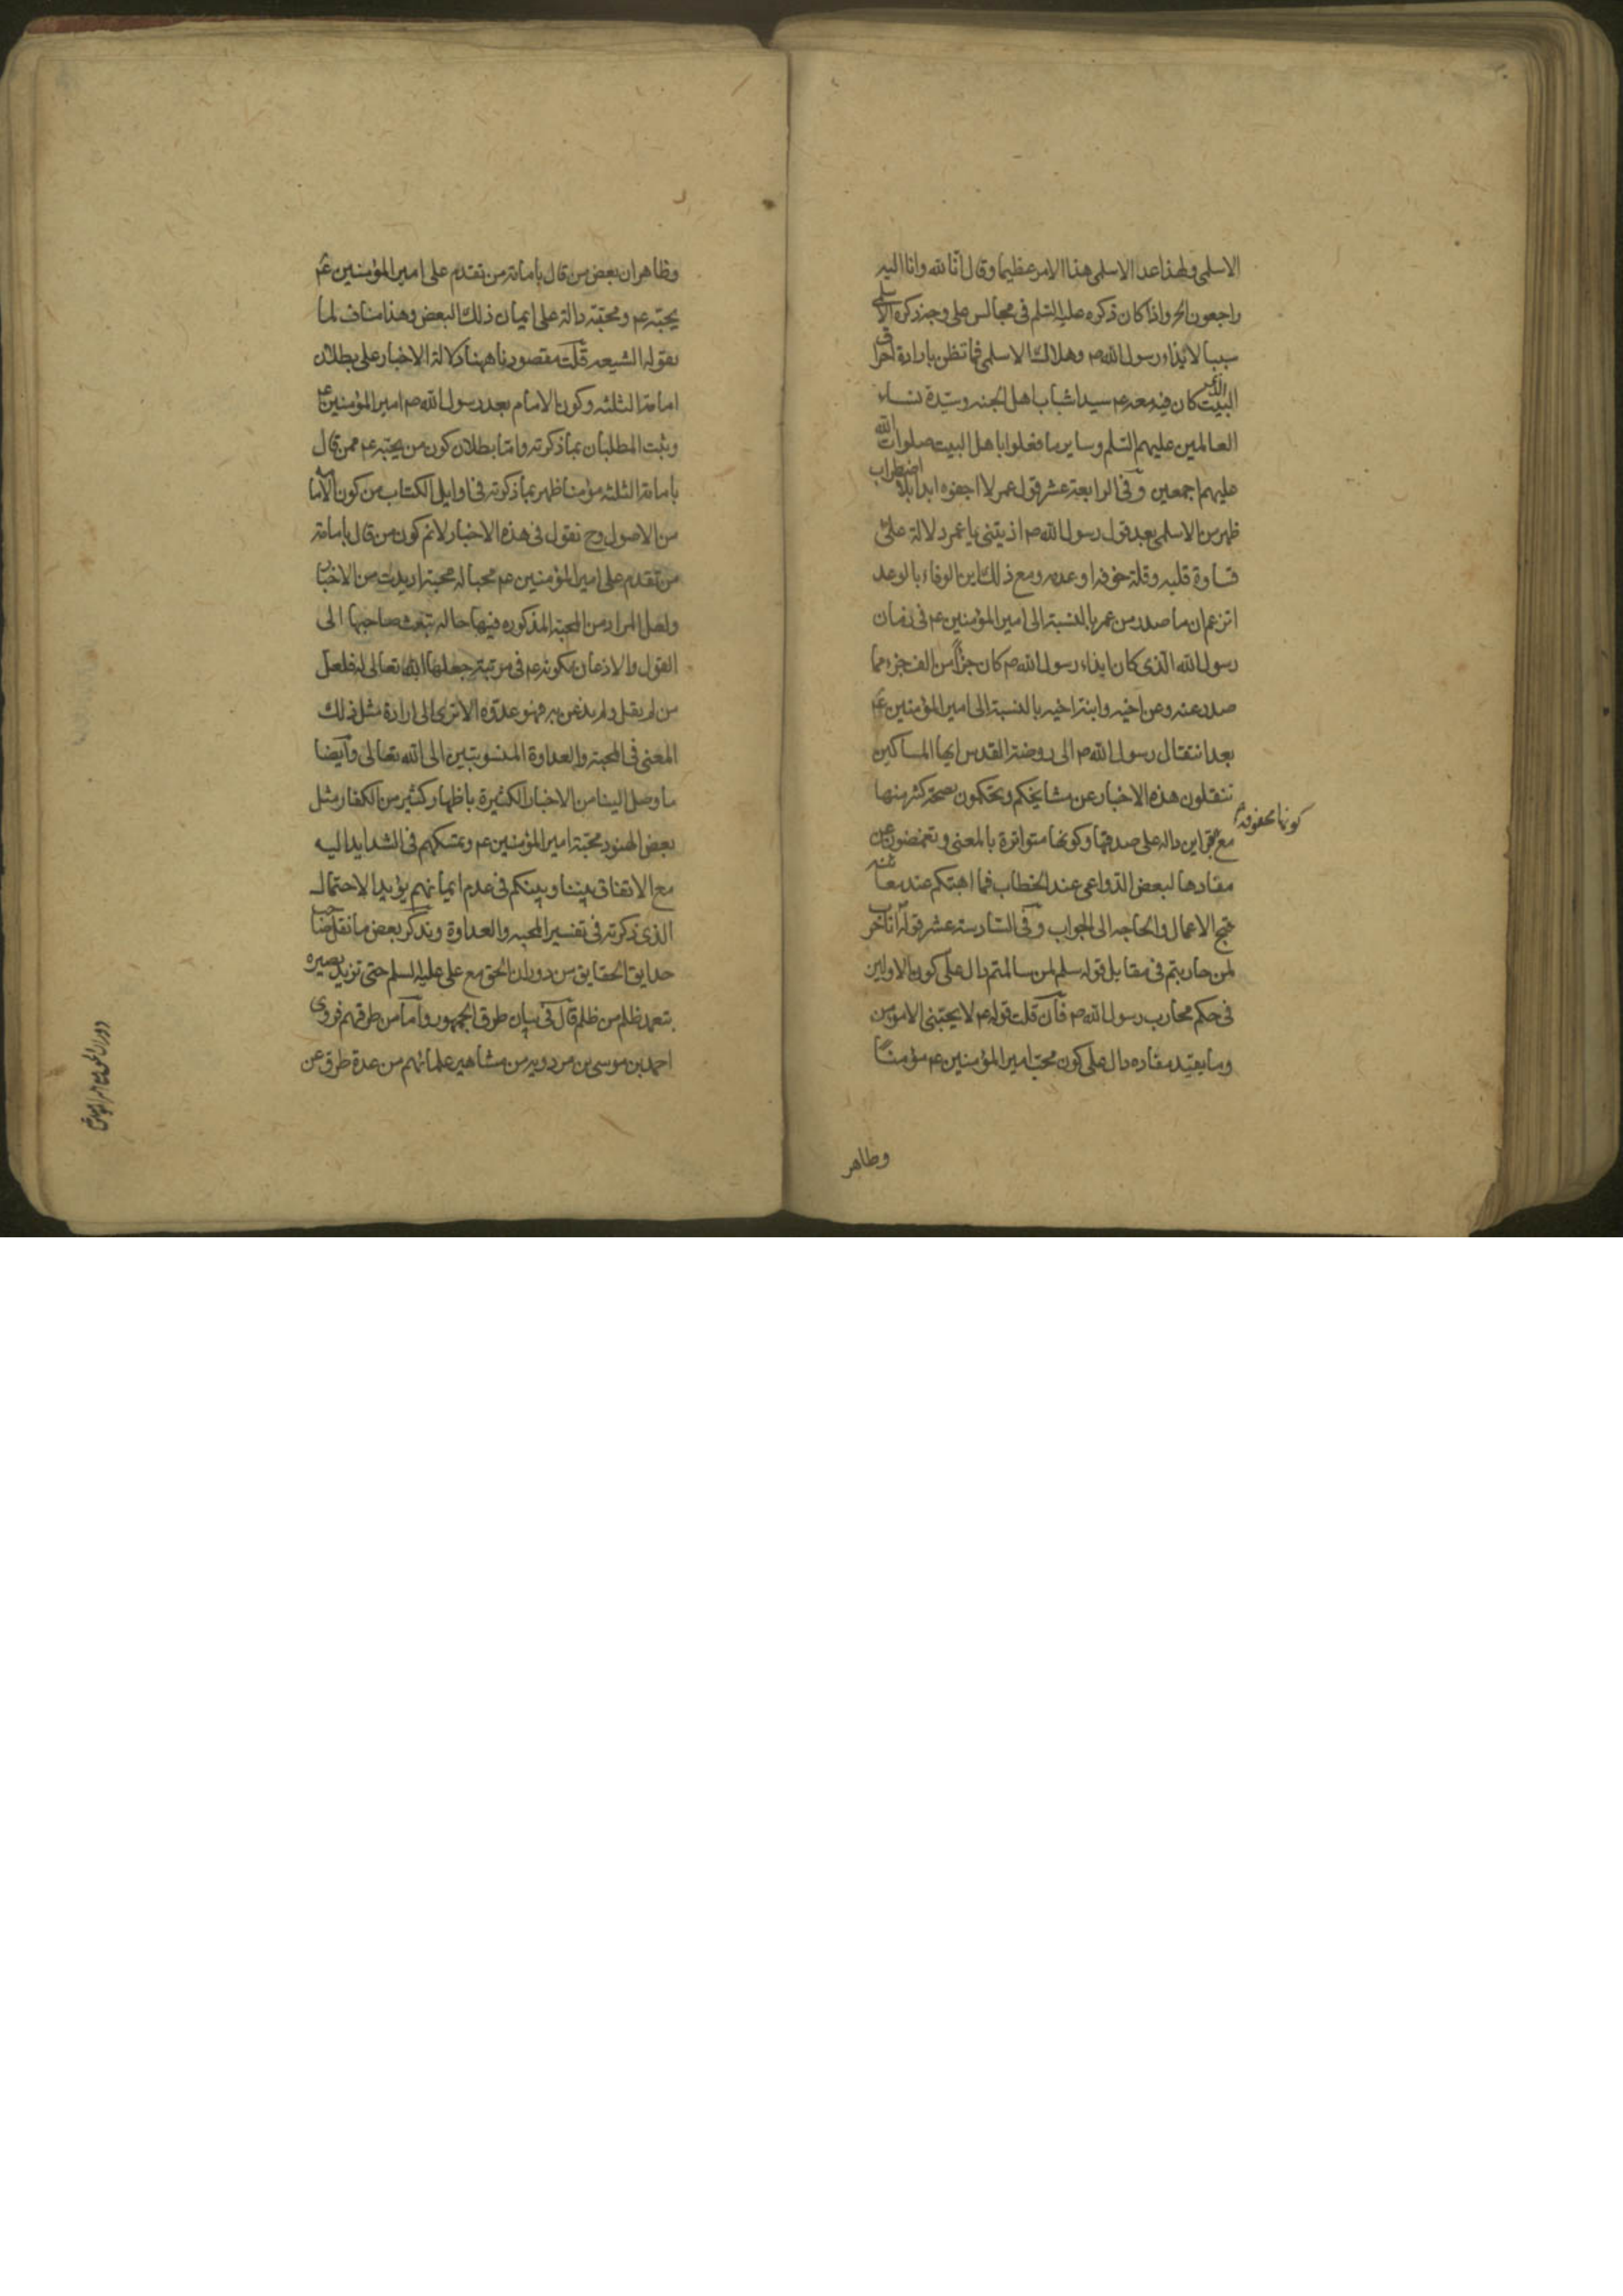 الاسلمى ولهذا عد الاسلمى هذا الامر عظيما وقال انا لله وانا اليه
راجعون الخ واذا كان ذكره عليه السلم فى مجالس على وجه ذكره الاسلمى
سببا لايذاء رسول الله ص وهلاك الاسلمى فما تظن بارادة احراق
البيت الذى كان فيه معه ع سيدا شباب اهل الجنه وسيدة نساء
العالمين عليهم السلم وساير ما فعلوا باهل البيت صلوات الله
عليهم اجمعين وفى الرابعة عشر قول عمر لا اجفوه ابدا بلا اضطراب
ظهر من الاسلمى بعد قول رسول الله ص اذيتنى يا عمر دلالة على
قساوة قلبه وقلة خوفه او عدمه ومع ذلك اين الوفاء بالوعد
اتزعم ان ما صدر من عمر بالنسبة الى امير المؤمنين ع فى زمان
رسول الله الذى كان ايذاء رسول الله ص كان جزأ من الف جزء مما
صدر عنه وعن اخيه وابنة اخيه بالنسبة الى امير المؤمنين ع
بعد انتقال رسول الله ص الى روضة القدس ايها المساكين
تنقلون هذه الاخبار عن مشايخكم وتحكمون بصحة كثر منها
مع كونها محفوفة بقراين داله على صدقها وكونها متواترة بالمعنى وتغمضون عن
مفادها لبعض الدواعى عند الخطاب فما اهبتكم عند معاينة
الاعمال والحاجه الى الجواب وفى السادسة عشر قوله انا حرب
لمن حاربتم فى مقابل قوله سلم لمن سالمتم دال على كون الاولين
فى حكم محارب رسول الله ص فان قلت قوله ع لا يحبنى الا مؤمن
وما يفيد مفاده دال على كون محب امير المؤمنين ع مؤمنا
وظاهر
وظاهر ان بعض من قال بامامة من تقدم على امير المؤمنين ع
يحبه ع ومحبته دالة على ايمان ذلك البعض وهذا مناف لما
يقوله الشيعه قلت مقصودنا ههنا دلالة الاخبار على بطلان
امامة الثلثه وكون الامام بعد رسول الله ص امير المؤمنين ع
وثبت المطلبان بما ذكرته واما بطلان كون من يحبه ع ممن قال
بامامة الثلثه مؤمنا ظهر بما ذكرته فى اوايل الكتاب من كون الامامة
من الاصول وح نقول فى هذه الاخبار لانم كون من قال بامامة
من تقدم على امير المؤمنين ع محبا له محبة اريدت من الاخبار
ولعل المراد من المحبة المذكوره فيها حاله تبعث صاحبها الى
القول والاذعان بكونه ع فى مرتبة جعلها الله تعالى له فلعل
من لم يقل ولم يذعن به فهو عدوه الا ترى الى ارادة مثل ذلك
المعنى فى المحبة والعداوة المنسوبتين الى الله تعالى وايضا
ما وصل الينا من الاخبار الكثيرة باظهار كثير من الكفار مثل
بعض الهنود محبة امير المؤمنين ع وتمسكهم فى الشدايد اليه
مع الاتفاق بيننا وبينكم فى عدم ايمانهم يؤيد الاحتمال
الذى ذكرته فى تفسير المحبه والعداوة ونذكر بعض ما نقل صاحب
حدايق الحقايق من دوران الحق مع على عليه السلم حتى تزيد بصيره
بتعمد ظلم من ظلم قال فى بيان طرق الجمهور واما من طرقهم فروى
احمد بن موسى بن مردويه من مشاهير علمائهم من عدة طرق عن
دوران الحق مع امير المؤمنين